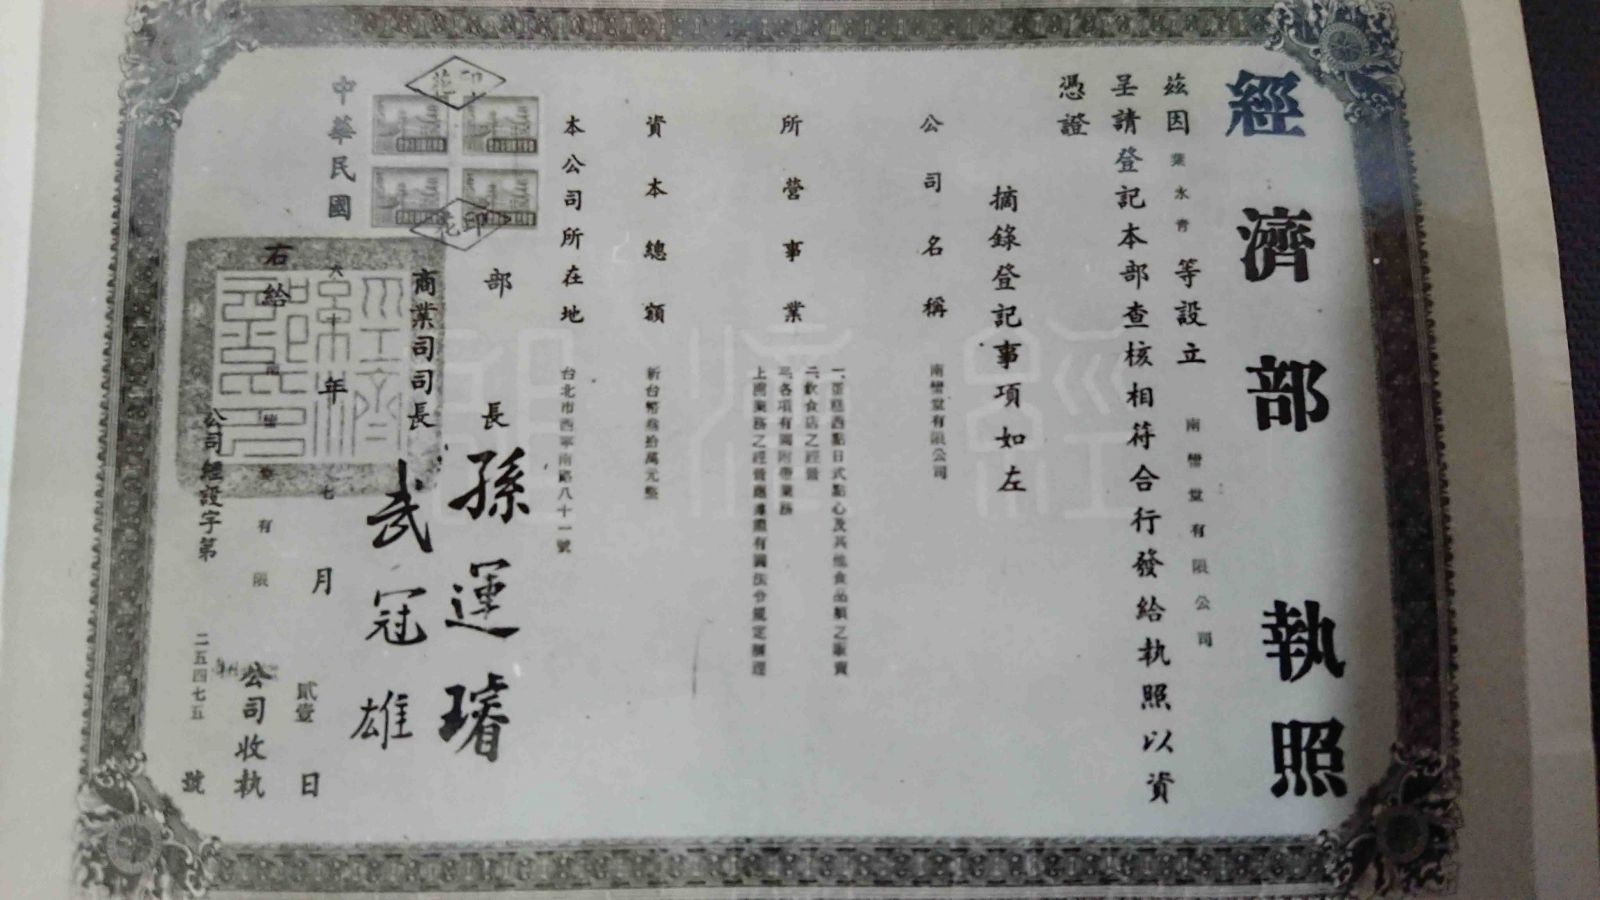 經濟部執照
茲因葉永青等設立南蠻堂有限公司
呈請登記本部查核相符合行發給執照以資
憑證
摘錄登記事項如左
公司名稱 南蠻堂有限公司
所營事業 一、蛋糕西點日式點心及其他食品類之販賣
二、飲食店之經營
三、各項有關附帶業務
上開業務之經營應遵照有關法令規定辦理
資本總額 新台幣叁拾萬元整
本公司所在地 台北市西寧南路八十一號
印花
印花
部長 孫運璿
商業司司長 武冠雄
中華民國六十年七月貳壹日
右給南蠻堂有限公司收執
公司經設字第二五四七五號